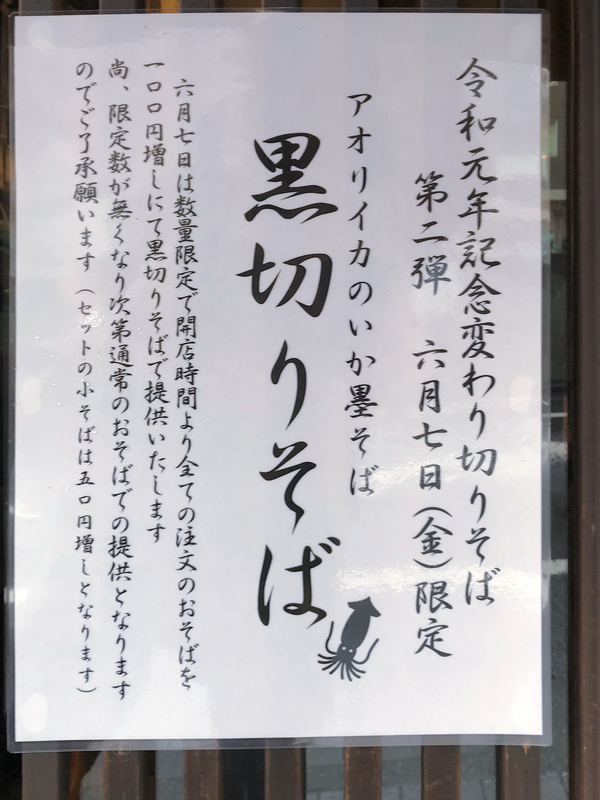 令和元年記念変わり切りそば
第二弾　六月七日（金）限定
アオリイカのいか墨そば
黒切りそば
六月七日は数量限定で開店時間より全ての注文のおそばを
一〇〇円増しにて黒切りそばで提供いたします
尚、限定数が無くなり次第通常のおそばでの提供となります
のでご了承願います（セットの小そばは五〇円増しとなります）